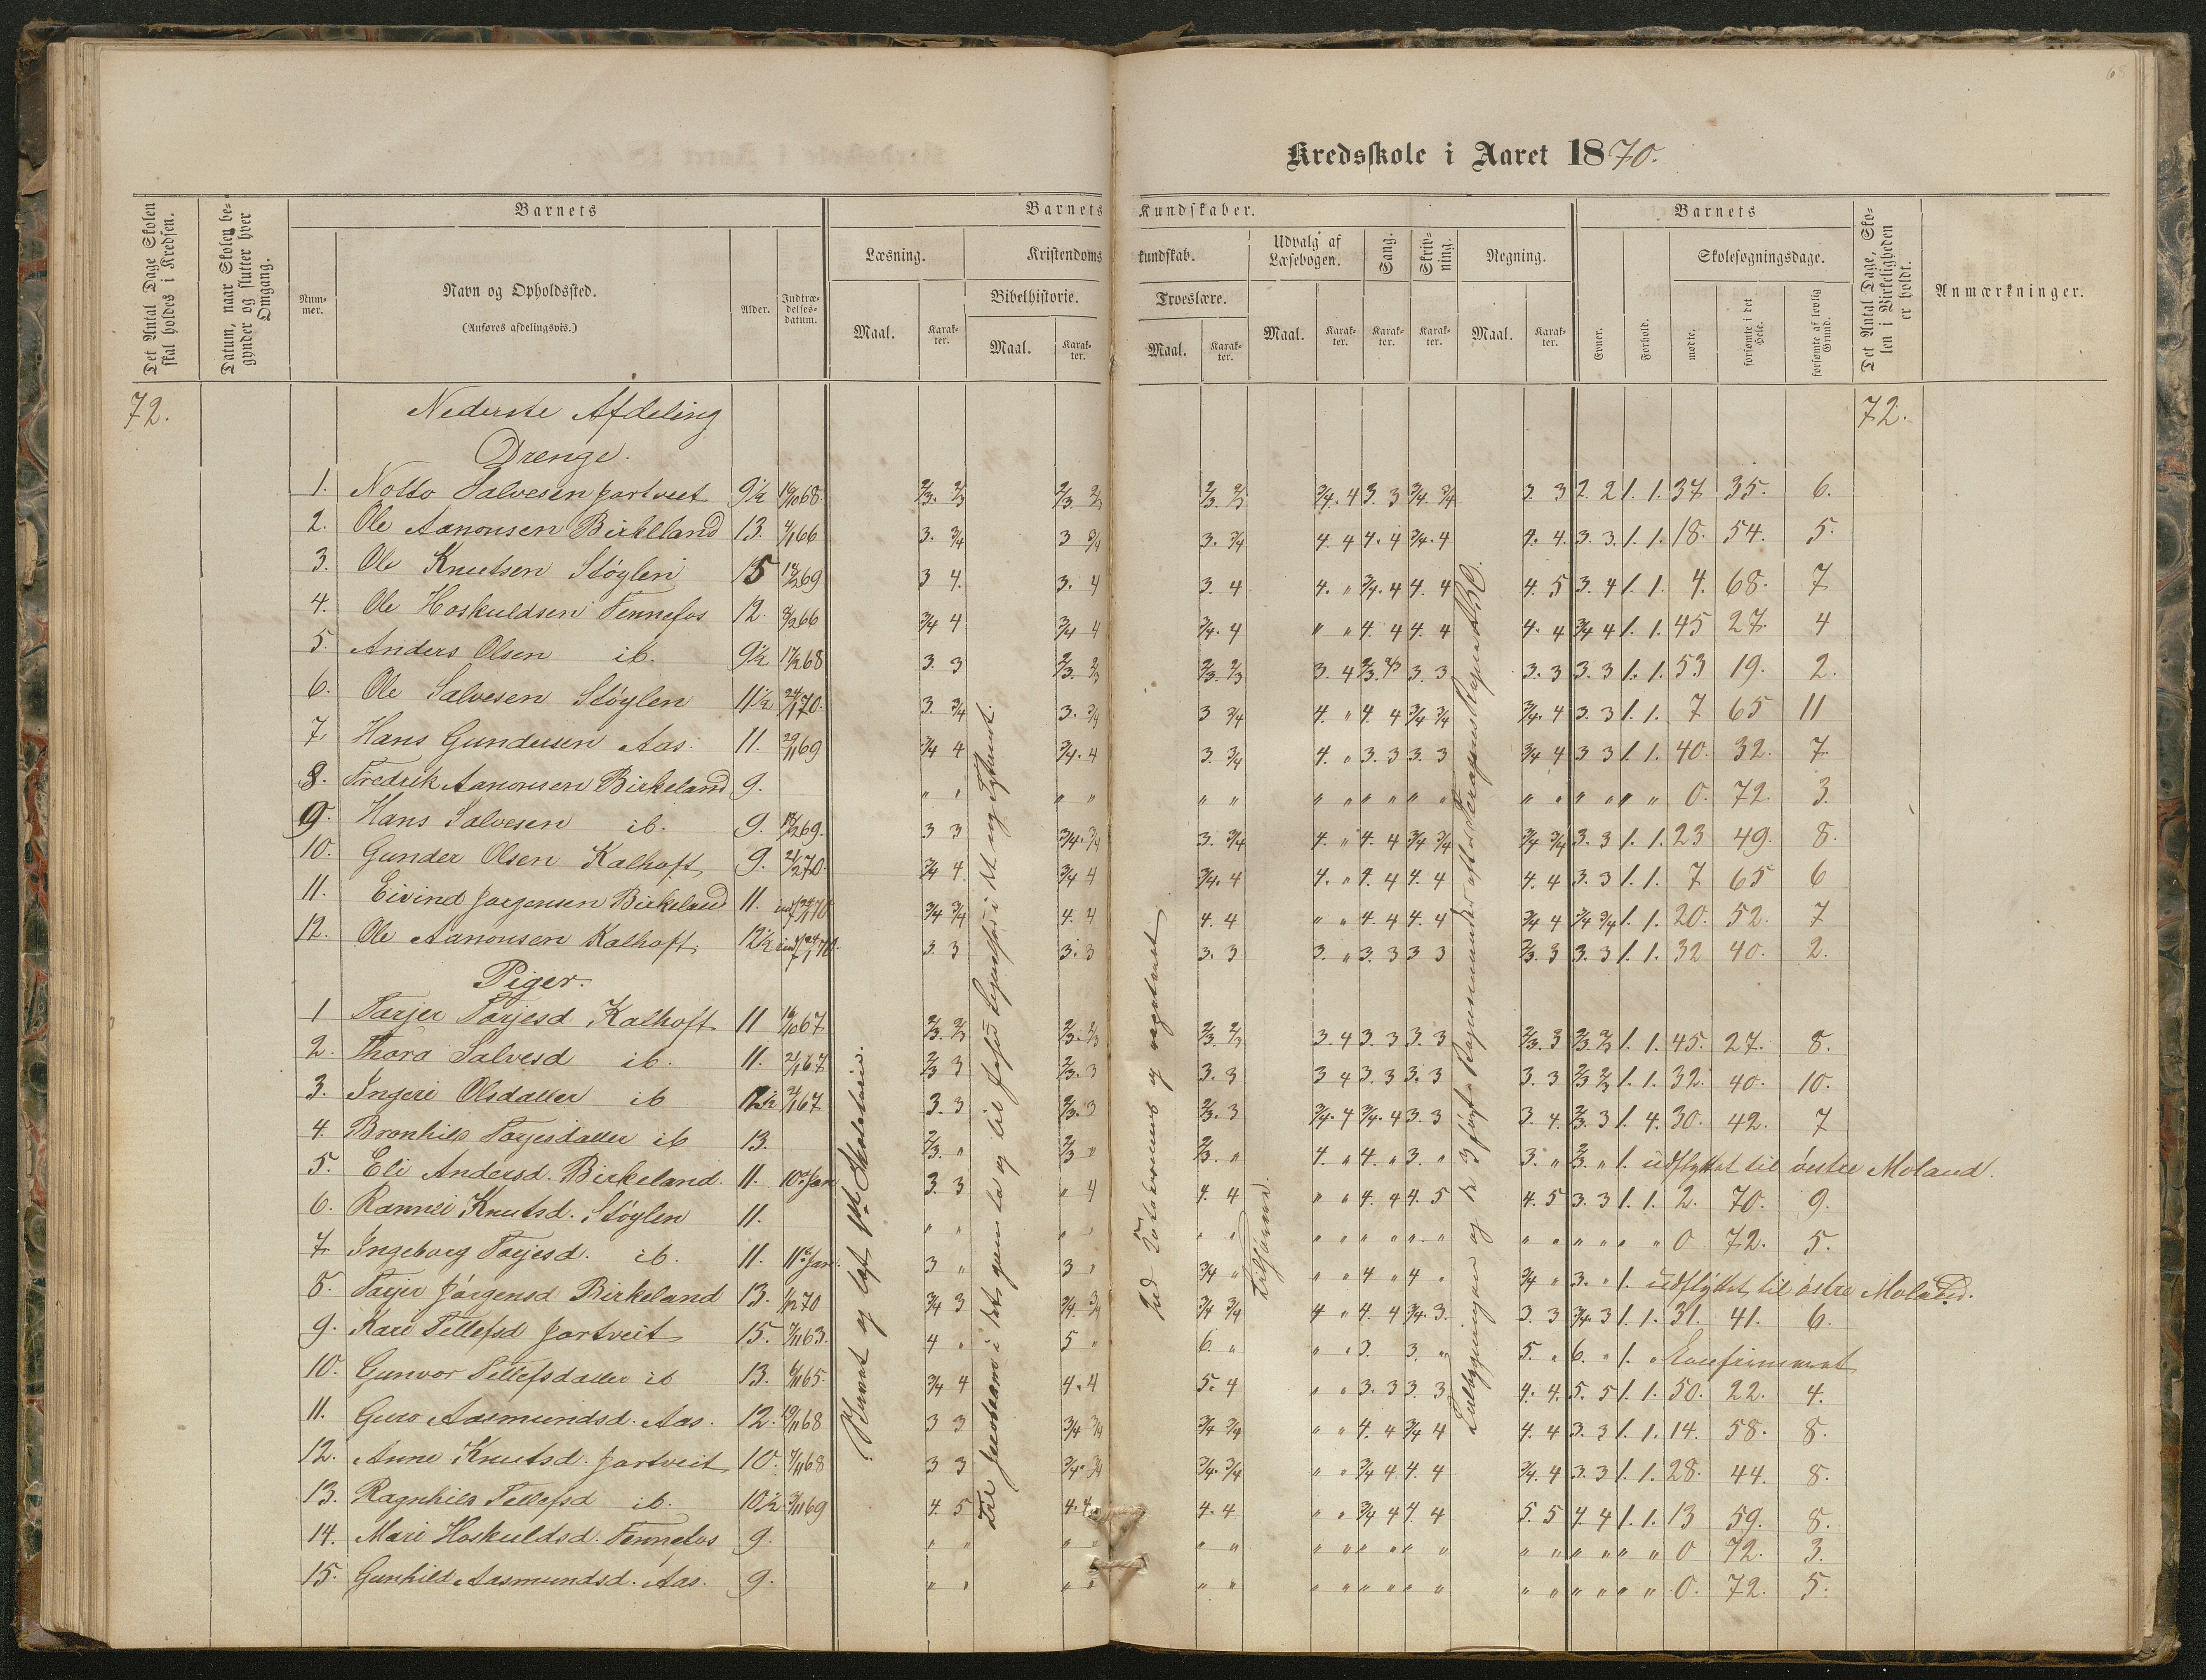 68
Kredsskole i Aaret 1870.
Det Antal Dage Skolen skal holdes i Kredsen.
Datum, naar Skolen begynder og slutter hver Omgang.
Barnets
Nummer.
Navn og Opholdssted.
(Anføres afdelingsvis.)
Alder.
Indtrædelsesdatum.
Barnets Kundskaber.
Læsning.
Maal.
Karakter.
Kristendomskundskab.
Bibelhistorie.
Maal.
Karakter.
Troeslære.
Maal.
Karakter.
Udvalg af Læsebogen.
Maal.
Karakter.
Sang.
Karakter.
Skrivning.
Karakter.
Regning.
Maal.
Karakter.
Barnets
Evner.
Forhold.
Skolesøgningsdage.
mødte.
forsømte i det Hele.
forsømte af lovlig Grund.
Det Antal Dage, Skolen i Virkeligheden er holdt.
Anmærkninger.
72. Nederste Afdeling 72.
Drenge.
1. Notto Salvesen Jortveit 9½ 19/10 68. 2/3. 2/3 2/3 2/3 2/3 2/3 3/4. 4 3. 3 3/4. 3/4 3. 3 2. 2 1. 1. 37 35. 6.
2. Ole Aanonsen Birkeland 13. 4/1 66 3. 3/4 3 3/4 3. 3/4 4. 4 4. 4 3/4. 4 4. 4. 3. 3. 1. 1. 18. 54. 5.
3. Ole Knutsen Støylen 15 69 3 4. 3. 4 3. 4 4. " 3/4. 4 4. 4 4. 5 3. 4 1. 1. 4. 68. 7
4. Ole Hoskuldsen Tennefos 12. 8/2 66 3/4 4 3/4 4 3/4. 4 " " 4. 4 4. 4 4. 4 3/4 4 1. 1. 45 27. 4
5. Anders Olsen ib. 9½ 68 3. 3 2/3. 2/3 2/3. 2/3 3. 4 2/3. 2/3 3. 3 3. 3 3. 3 1. 1. 53 19. 2.
6. Ole Salvesen Støylen 11½ 24/1 70. 3. 3/4 3. 3/4 3 3/4 4. " 4. 4 3/4 3/4 3/4. 4 3. 3 1. 1. 7 65 11
7. Hans Gundersen Aas. 11. 29/11 69 3/4 4 3/4. 4 3. 3/4 4. " 3. 3 3. 3 3/4 4 3 3 1. 1. 40. 32. 7.
8. Fredrik Aanonsen Birkeland 9. " " " " " " " " " " " " " " " " " " 0. 72. 3.
9. Hans Salvesen ib. 9. 69. 3 3 3/4. 3/4 3. 3/4 4. " 4. 4 3/4 3/4 3/4 3/4 3. 3 1. 1. 23 49. 8.
10. Gunder Olsen Kalhoft 9. 21/2 70. 3/4 4 3/4 4 3/4. 4 4. " 4. 4 4. 4 4. 4 3. 3 1. 1. 7 65 6
11. Eivind Jørgensen Birkeland 11. indf 24/1 70 3/4 3/4 4. 4 4. 4 " " 4. 4 4. 4 3/4 4 3/4 3/4 1. 1. 20. 52. 7
12. Ole Aanonsen Kalhoft. 12½ indf 24/1 70. 3. 3 3. 3 3. 3 3. " 3. 3 3 3 2/3. 3 3. 3 1. 1. 32 40. 2.
Piger.
1 Tarjer Tarjesd Kalhoft 11 19/10 67 2/3. 2/3 2/3. 2/3 2/3. 2/3 3. 4 3. 3 3. 3 2/3. 3 2/3. 2/3 1. 1. 45. 27. 8.
2. Thora Salvesd ib. 11. 21/1 67. 2/3 3 2/3. 3 3. 3 3 4 3. 3 3. 3 3. 3 2/3 2/3 1. 1. 32. 40. 10.
3. Ingeri Olsdatter ib 12½ 21/1 67 3. 3 2/3. 3 2/3. 3 3/4. 4 3/4. 4 3 3 3. 4. 2/3. 3 1. 4. 30. 42. 7
4. Bronhild Tarjesdatter ib 13. 2/3. " 2/3 " 2/3. " 4. " 4. " 3. " 3. " 2/3. " 1. udflyttet til østre Moland.
5. Eli Andersd. Birkeland. 11. 10de Jan 3. 3 " 4 4. 4 " " 4. 4 4. 5 4. 5 3. 3 1. 1. 2. 70. 9.
6. Rannei Knutsd. Støylen 11. " " " " " " " " " " " " " " " " " 0 72. 5.
7. Ingeborg Tarjesd. ib. 11. 11te Jan. 3 " 3 " 3/4 " " " 4 " 4 " 3/4 " 3. " 1. udflyttet til østre Moland.
8. Tarjer Jørgensd Birkeland 13. 70 3/4 3 3/4. 3/4 3/4 3/4 4 " 4. 4 3/4. 3. 3. 3 3/4. 3 1. 1. 31. 41. 6.
9. Kari Tellefsd Jortveit 15. 7/11 63. 4 " 5 " 6. " " " 3. 3. " 5. " 6. " 1. " Konfirmeret
10. Gunvor Tellefsdatter ib 13. 65. 3/4 4 4. 4 5. 4 " " 3. 3 3. 3 4. 4. 5. 5 1. 1. 50. 22. 4.
11. Guro Aasmundsd. Aas. 12. 19/11 68 3 3 3/4 3/4 3/4 3/4 " " 4. 4 3/4 4 4. 4 3. 3 1. 1. 14. 58. 8.
12. Anne Knutsd. Jortveit 10. 7/11 68 3 3 3/4. 3/4 3/4. 3/4 " " 3/4 4 4. 4 3/4. 4 3. 3 1. 1. 28. 44. 8.
13. Ragnhild Tellefsd ib. 10½ 3/11 69 4. 5 4. 4 4. 4 " " 3/4 4 4. 4 5. 5 4. 4 1. 1. 13 59. 8.
14. Mari Hoskuldsd. Tennefos 9. " " " " " " " " " " " " " " " " " " 0 72. 3.
15. Gunhild Aasmundsd. Aas. 9. " " " " " " " " " " " " " " " " " " 0. 72. 5.
og læst
Til i det gamle og til Jesu i det nye Testament.
og
Tilhørende.
og de 3 første